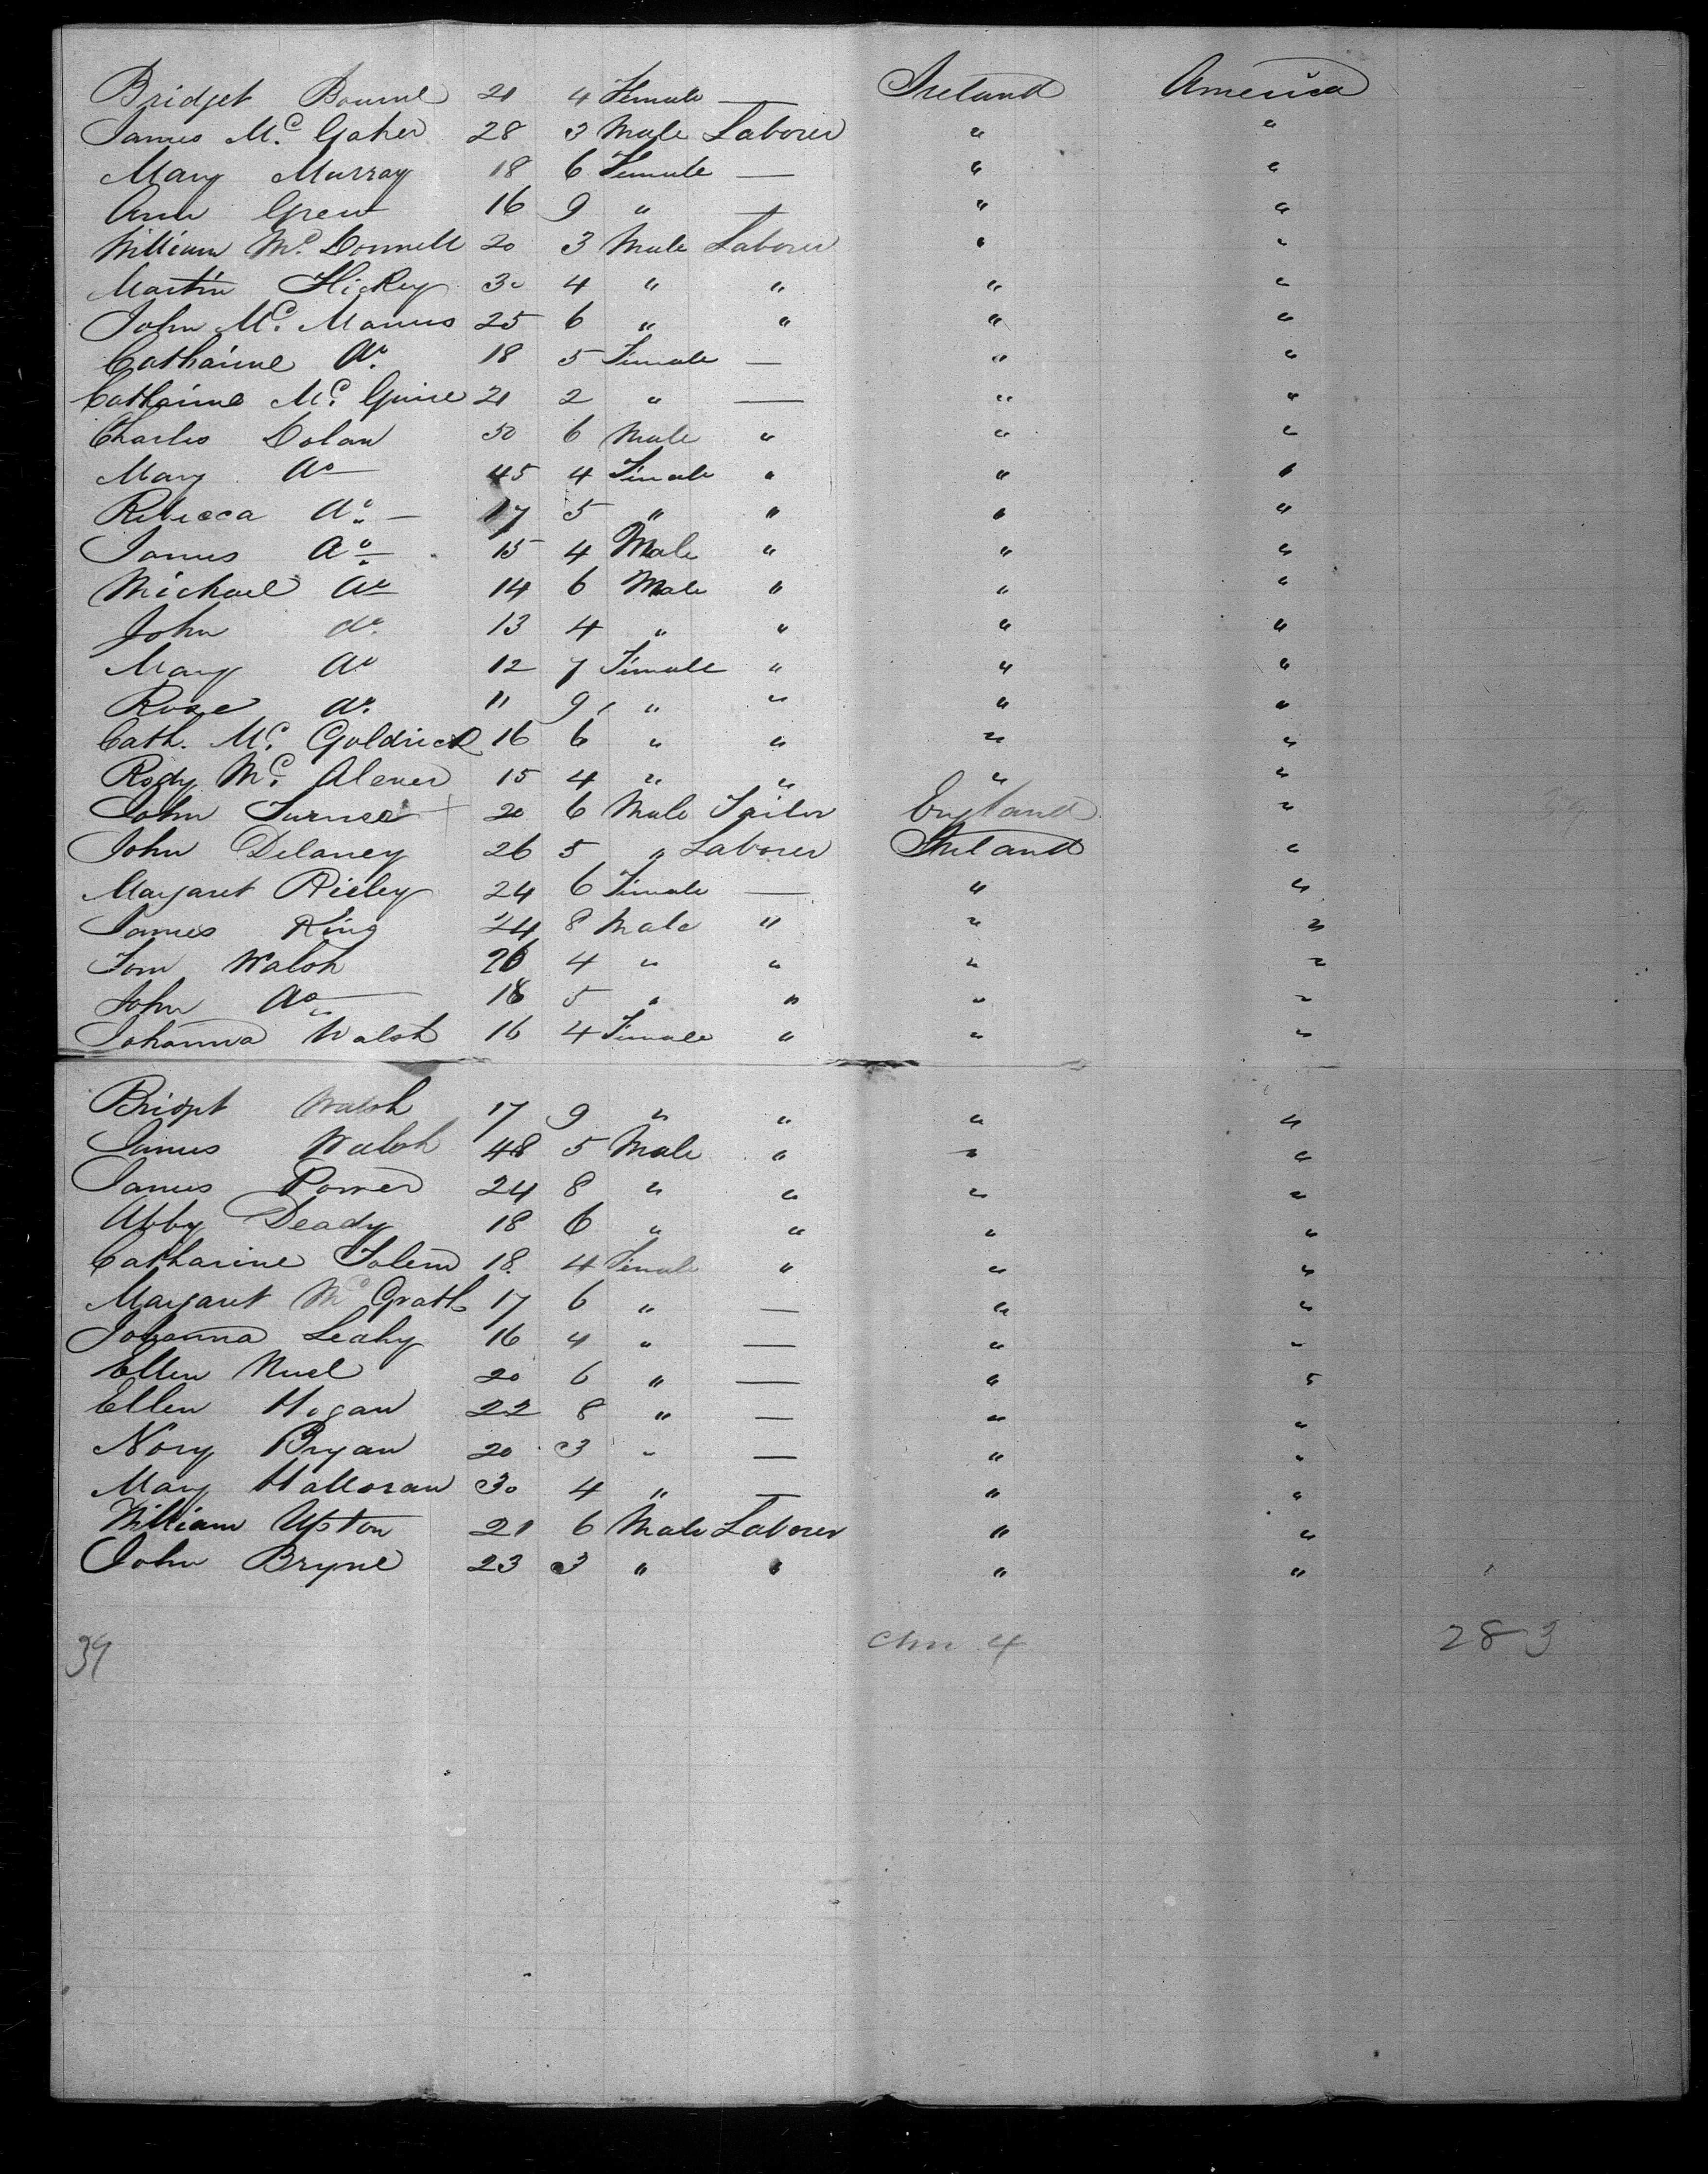 Bridget Bourne 21 4 Female — Ireland America
James Mc. Gaher 28 3 Male Laborer " "
Mary Murray 18 6 Female — " "
Ann Grew 16 9 " — " "
William Mc. Donnell 20 3 Male Laborer " "
Martin Hickey 30 4 " " " "
John Mc. Manus 25 6 " " " "
Catharine do. 18 5 Female — " "
Catharine Mc. Guire 21 2 " — " "
Charles Dolan 50 6 Male " " "
Mary do — 45 4 Female " " "
Rebecca do. — 17 5 " " " "
James do — 15 4 Male " " "
Michael do 14 6 Male " " "
John do. 13 4 " " " "
Mary do 12 7 Female " " "
Rose do. 11 9 " " " "
Cath. Mc. Goldrick 16 6 " " " "
Rody Mc. 15 4 " " " "
John 20 6 Male Tailor England "
John Delaney 26 5 " Laborer Ireland "
Margaret Rieley 24 6 Female — " "
James King 24 8 Male " " "
Tom Walsh 26 4 " " " "
John do — 18 5 " " " "
Johanna Walsh 16 4 Female " " "
Bridget Walsh 17 9 " " " "
James Walsh 48 5 Male " " "
James Power 24 8 " " " "
Abby Deady 18 6 " " " "
Catharine 18. 4 Female " " "
Margaret Mc Grath 17 6 " — " "
Johanna Leahy 16 4 " — " "
Ellen Nuel 20 6 " — " "
Ellen Hogan 22 8 " — " "
Nory Bryan 20 3 " — " "
Mary Halloran 30 4 " — " "
William Upton 21 6 Male Laborer " "
John Bryne 23 3 " " " "
39 4 283